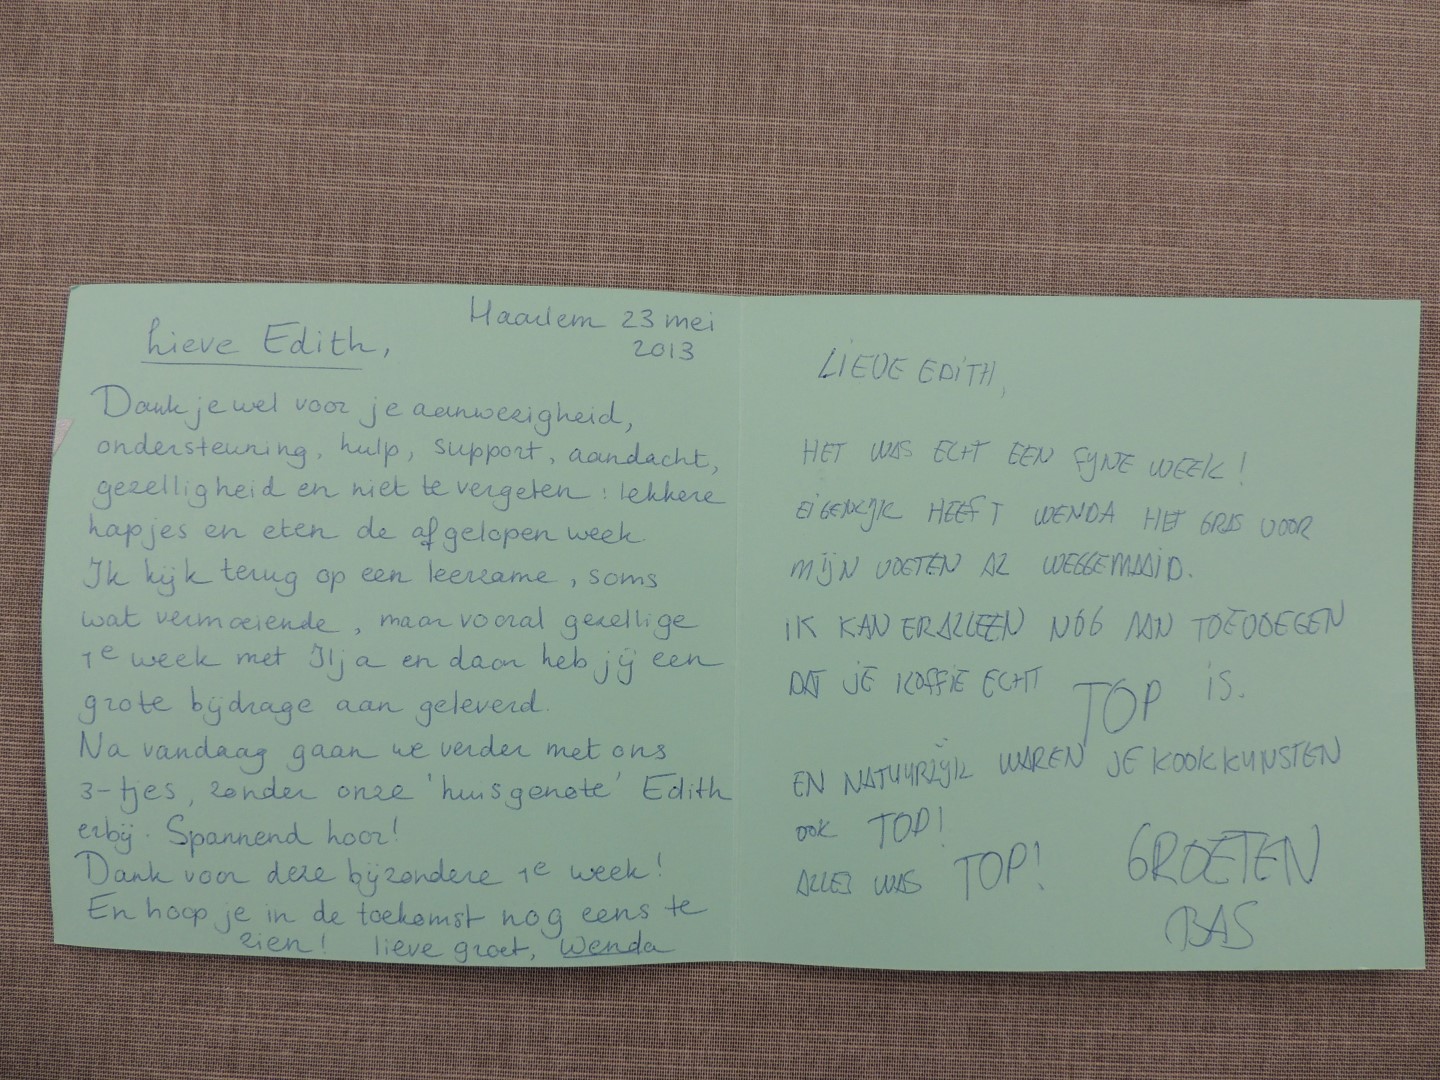 Haarlem 23 mei
2013
Lieve Edith,
Dank je wel voor je aanwezigheid,
ondersteuning, hulp, support, aandacht,
gezelligheid en niet te vergeten: lekkere
hapjes en eten de afgelopen week.
Ik kijk terug op een leerzame, soms
wat vermoeiende, maar vooral gezellige
1e week met Ilja en daar heb jij een
grote bijdrage aan geleverd.
Na vandaag gaan we verder met ons
3-tjes, zonder onze 'huisgenote' Edith
erbij. Spannend hoor!
Dank voor deze bijzondere 1e week!
En hoop je in de toekomst nog eens te
zien! lieve groet, Wenda
LIEVE EDITH,
HET WAS ECHT EEN FIJNE WEEK!
EIGENLIJK HEEFT WENDA HET GRAS VOOR
MIJN VOETEN AL WEGGEMAAID.
IK KAN ER ALLEEN NOG AAN TOEVOEGEN
DAT JE KOFFIE ECHT TOP IS.
EN NATUURLIJK WAREN JE KOOKKUNSTEN
OOK TOP!
ALLES WAS TOP! GROETEN
BAS